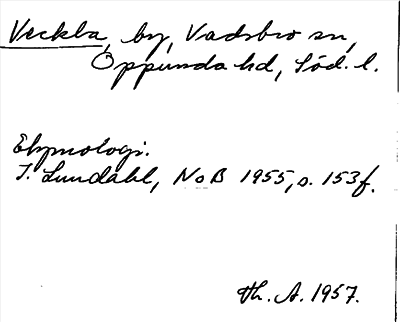 Veckla, by, Vadsbro sn,
Oppunda hd, Söd. l.
Etymologi.
I. Lundahl, NoB 1955, s. 153f.
Th. A. 1957.